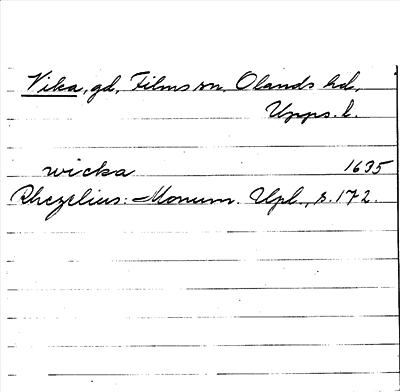 Vika, gd, Films sn. Olands hd,
Upps. l.
wicka 1635
Rhezelius: Monum. Upl., s. 172.